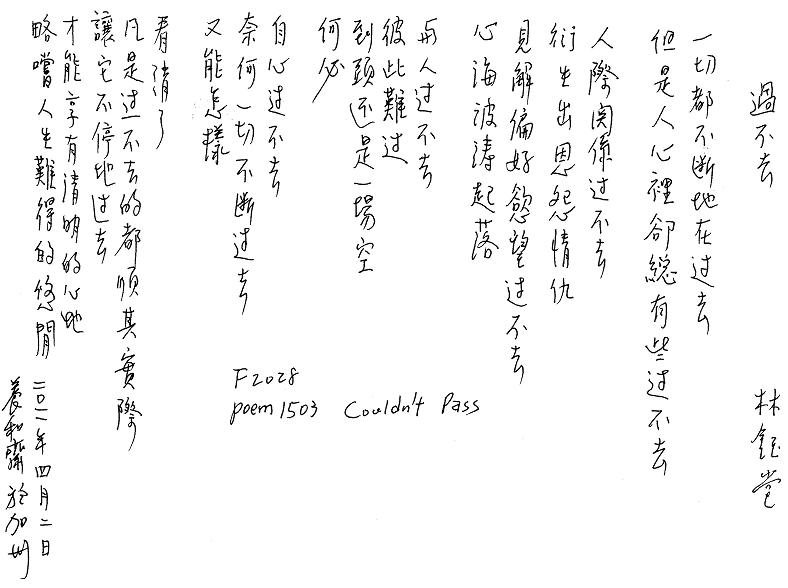 過不去
林鈺堂
一切都不断地在过去
但是人心裡卻總有些过不去
人際関係过不去
衍生出恩怨情仇
見解偏好慾望过不去
心海波涛起落
与人过不去
彼此難过
到頭还是一場空
何必
自心过不去
奈何一切不断过去
又能怎樣
看清了
凡是过不去的都順其實際
讓它不停地过去
才能享有清明的心地
略嚐人生難得的悠閒
二〇一一年四月二日
養和齋於加州
F2028
poem 1503 Couldn't Pass